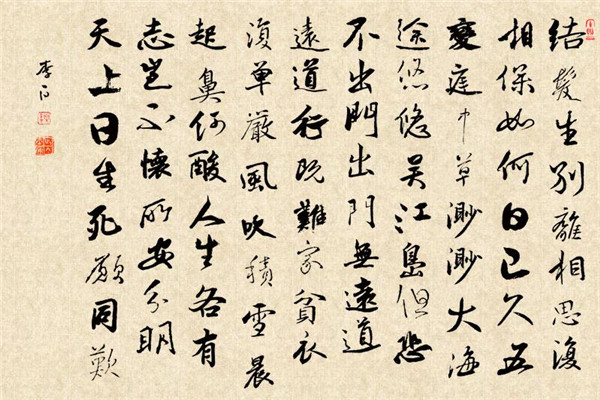 結髮生別離相思復
相保如何日已久五
變庭中草渺渺大海
途悠悠吳江島但悲
不出門出門無遠道
遠道行既難家貧衣
復單嚴風吹積雪晨
起鼻何酸人生各有
志豈不懷所安分明
天上日生死願同歎
李